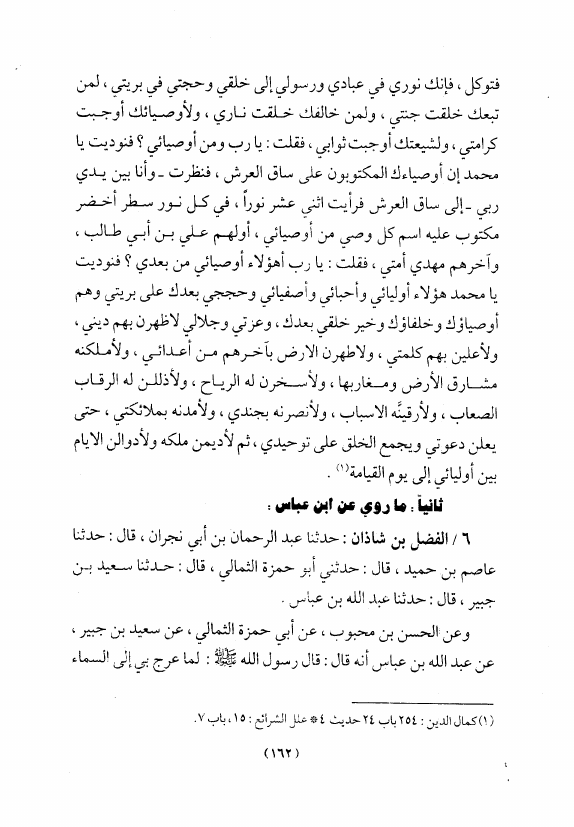 فتوكل ، فإنك نوري في عبادي ورسولي إلى خلقي وحجتي في بريتي ، لمن
تبعك خلقت جنتي ، ولمن خالفك خلقت ناري ، ولأوصيائك أوجبت
كرامتي ، ولشيعتك أوجبت ثوابي ، فقلت : يا رب ومن أوصيائي ؟ فنوديت يا
محمد إن أوصياءك المكتوبون على ساق العرش ، فنظرت ـ وأنا بين يدي
ربي ـ إلى ساق العرش فرأيت اثني عشر نوراً ، في كل نور سطر أخضر
مكتوب عليه اسم كل وصي من أوصيائي ، أولهم علي بن أبي طالب ،
وآخرهم مهدي أمتي ، فقلت : يا رب أهؤلاء أوصيائي من بعدي ؟ فنوديت
يا محمد هؤلاء أوليائي وأحبائي وأصفيائي وحججي بعدك على بريتي وهم
أوصياؤك وخلفاؤك وخير خلقي بعدك ، وعزتي وجلالي لاظهرن بهم ديني ،
ولأعلين بهم كلمتي ، ولاطهرن الارض بآخرهم من أعدائي ، ولأملكنه
مشارق الأرض ومغاربها ، ولأسخرن له الرياح ، ولأذللن له الرقاب
الصعاب ، ولأرقينَّه الاسباب ، ولأنصرنه بجندي ، ولأمدنه بملائكتي ، حتى
يعلن دعوتي ويجمع الخلق على توحيدي ، ثم لأديمن ملكه ولأدوالن الايام
بين أوليائي إلى يوم القيامة(١) .
ثانياً : ما روي عن ابن عباس :
٦ / الفضل بن شاذان : حدثنا عبد الرحمان بن أبي نجران ، قال : حدثنا
عاصم بن حميد ، قال : حدثني أبو حمزة الثمالي ، قال : حدثنا سعيد بن
جبير ، قال : حدثنا عبد الله بن عباس .
وعن الحسن بن محبوب ، عن أبي حمزة الثمالي ، عن سعيد بن جبير ،
عن عبد الله بن عباس أنه قال : قال رسول الله ﷺ : لما عرج بي إلى السماء
(١) كمال الدين : ٢٥٤ باب ٢٤ حديث ٤ * علل الشرائع : ١٥ ، باب ٧.
(١٦٢)